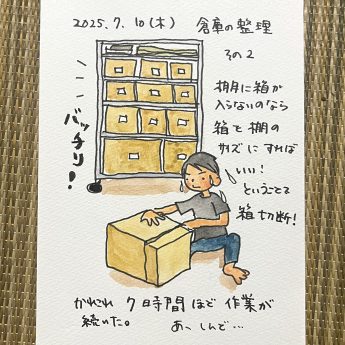 2025.7.10(木) 倉庫の整理
その2
棚に箱が
入らないのなら
箱を棚の
サイズにすれば
いい!
ということで
箱切断!
バッチリ!
かれこれ 7時間ほど作業が
続いた。 あ〜しんど…